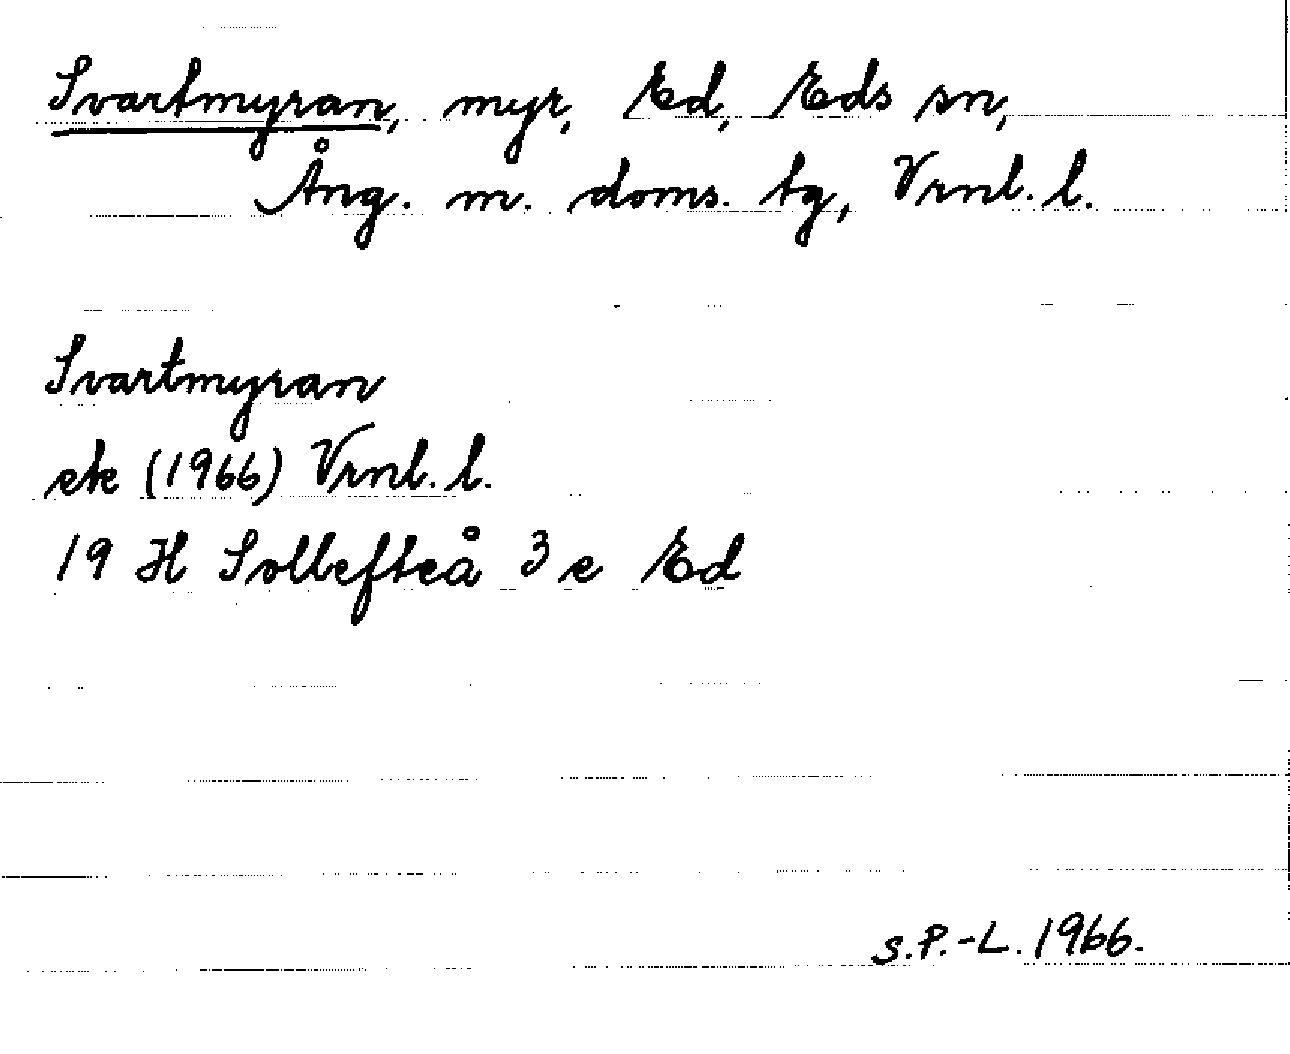 Svartmyran, myr, Ed, Eds sn,
Ång. m. doms. tg, Vrnl. l.
Svartmyran
ek (1966) Vrnl. l.
19 H Sollefteå 3 e Ed
S.P.-L. 1966.